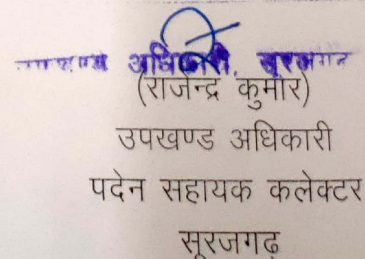 अधिकारी, सूरजगढ
(राजेन्द्र कुमार)
उपखण्ड अधिकारी
पदेन सहायक कलेक्टर
सूरजगढ़